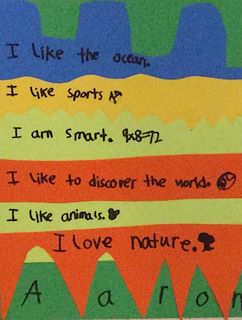 I like the ocean.
I like sports
I am smart. 9x8=72
I like to discover the world.
I like animals.
I love nature.
Aaron